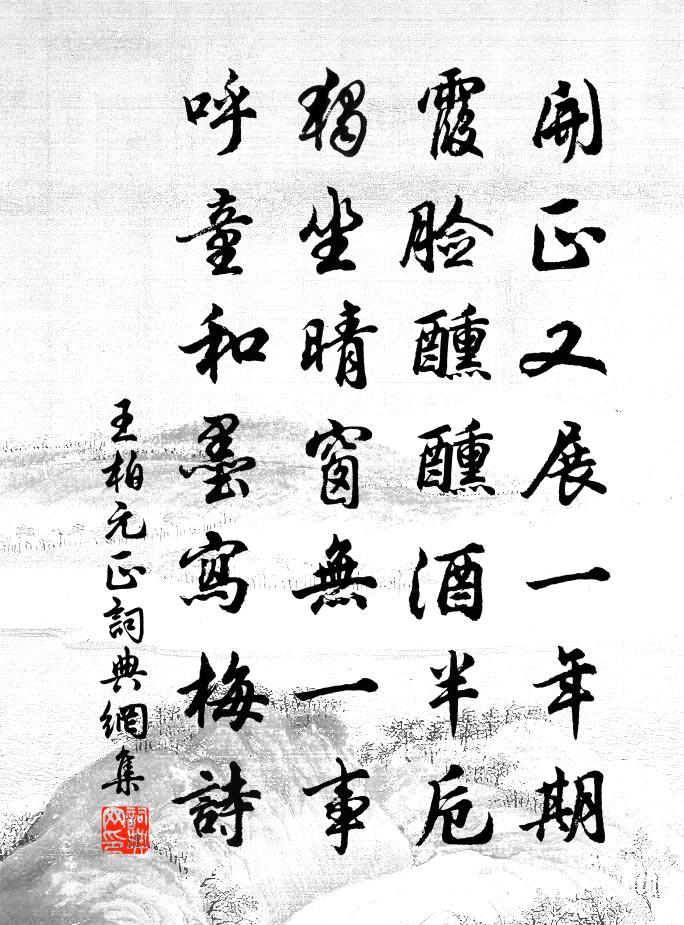 開正又展一年期
霞脸醺醺酒半卮
獨坐晴窗無一事
呼童和墨寫梅詩
王柏元正詞典網集